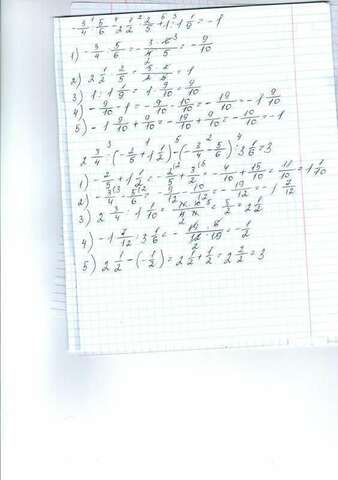 -3/4 : 5/6 - 2 1/2 · 2/5 + 1 : 1 1/9 = -1
1) -3/4 : 5/6 = -3·6/4·5 = -9/10
2) 2 1/2 · 2/5 = 5·2/2·5 = 1
3) 1 : 1 1/9 = 1 · 9/10 = 9/10
4) -9/10 - 1 = -9/10 - 10/10 = -19/10 = -1 9/10
5) -1 9/10 + 9/10 = -19/10 + 9/10 = -10/10 = -1
2 3/4 : (-2/5 + 1 1/2) - (-3/4 - 5/6) : 3 1/6 = 3
1) -2/5 + 1 1/2 = -2/5 + 3/2 = -4/10 + 15/10 = 11/10 = 1 1/10
2) -3/4 - 5/6 = -9/12 - 10/12 = -19/12 = -1 7/12
3) 2 3/4 : 1 1/10 = 11·10/4·11 = 5/2 = 2 1/2
4) -1 7/12 : 3 1/6 = -19·6/12·19 = -1/2
5) 2 1/2 - (-1/2) = 2 1/2 + 1/2 = 2 2/2 = 3